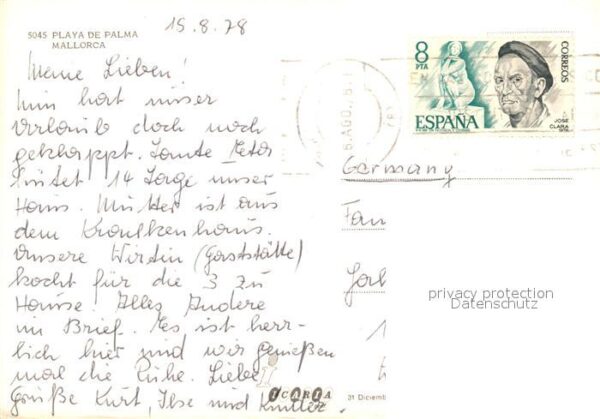 15.8.78
5045 PLAYA DE PALMA
MALLORCA
Meine Lieben!
Nun hat unser
Urlaub doch noch
geklappt. Tante
hütet 14 Tage unser
Haus. Mutter ist aus
dem Krankenhaus.
Unsere Wirtin (Gaststätte)
kocht für die 3 zu
Hause. Alles Andere
im Brief. Es ist herr-
lich hier und wir genießen
mal die Ruhe. Liebe
Grüße Kurt, Ilse und
8
PTA
CORREOS
ESPAÑA
JOSE
CLARA
Germany
Fam
privacy protection
Datenschutz
ICARIA
31 Diciem